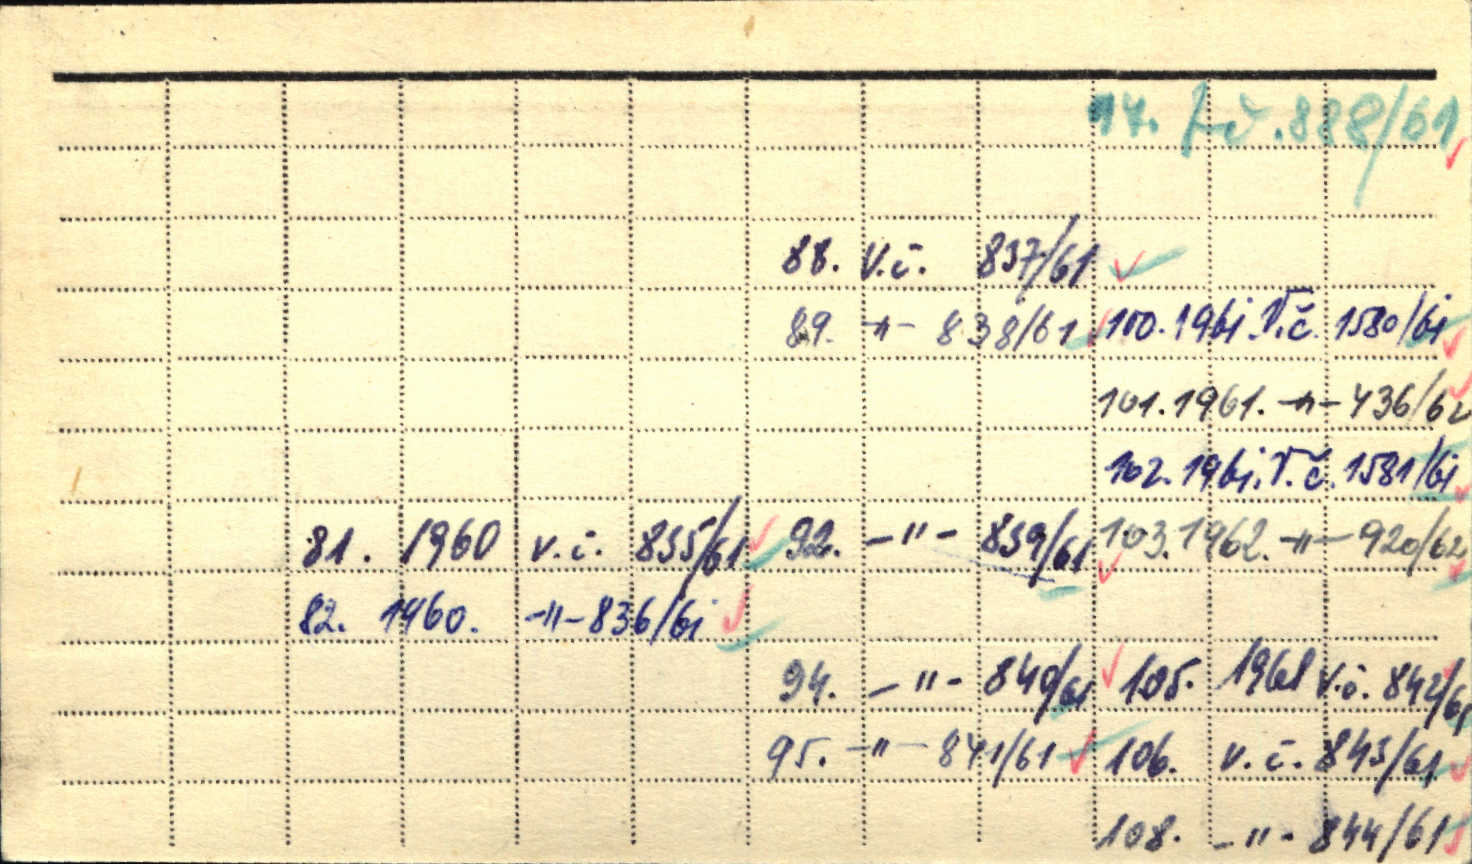 97. V.č. 888/61
88. V.č. 837/61
89. -"- 838/61 100. 1961. V.č. 1580/61
101. 1961. -"- 436/62
102. 1961. V.č. 1581/61
81. 1960 v.č. 835/61 92. -"- 839/61 103. 1962. -"- 920/62
82. 1960. -"- 836/61
94. -"- 840/61 105. 1961 v.č. 842/61
95. -"- 841/61 106. v.č. 843/61
108. -"- 844/61